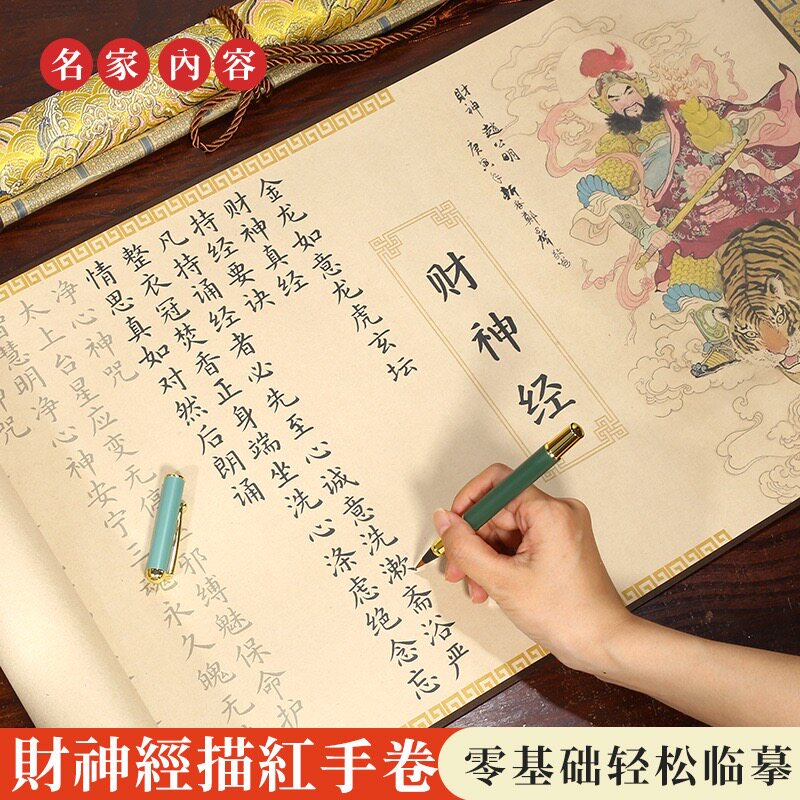 名家内容
財神趙公明
庚寅年
财神经
金龙如意龙虎玄坛
财神真经
持经要诀
凡持诵经者必先至心诚意洗漱斋浴严
整衣冠焚香正身端坐洗心涤虑绝念忘
情思真如对然后朗诵
净心神咒
太上台星应变无停邪缚魅保命护
智慧明净心神安宁三魂永久魄无
財神經描紅手卷
零基础轻松临摹